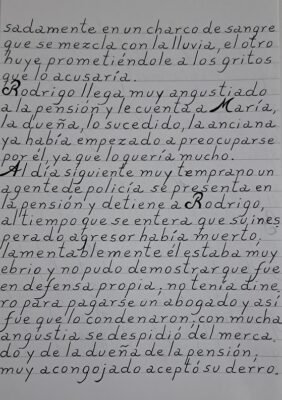 sadamente en un charco de sangre
que se mezcla con la lluvia, el otro
huye prometiéndole a los gritos
que lo acusaría.
Rodrigo llega muy angustiado
a la pensión y le cuenta a María,
la dueña, lo sucedido, la anciana
ya había empezado a preocuparse
por él, ya que lo quería mucho.
Al día siguiente muy temprano un
agente de policía se presenta en
la pensión y detiene a Rodrigo,
al tiempo que se entera que su ines
perado agresor había muerto,
lamentablemente él estaba muy
ebrio y no pudo demostrar que fue
en defensa propia, no tenía dine,
ro para pagarse un abogado y así
fue que lo condenaron, con mucha
angustia se despidió del merca,
do y de la dueña de la pensión,
muy acongojado aceptó su derro,